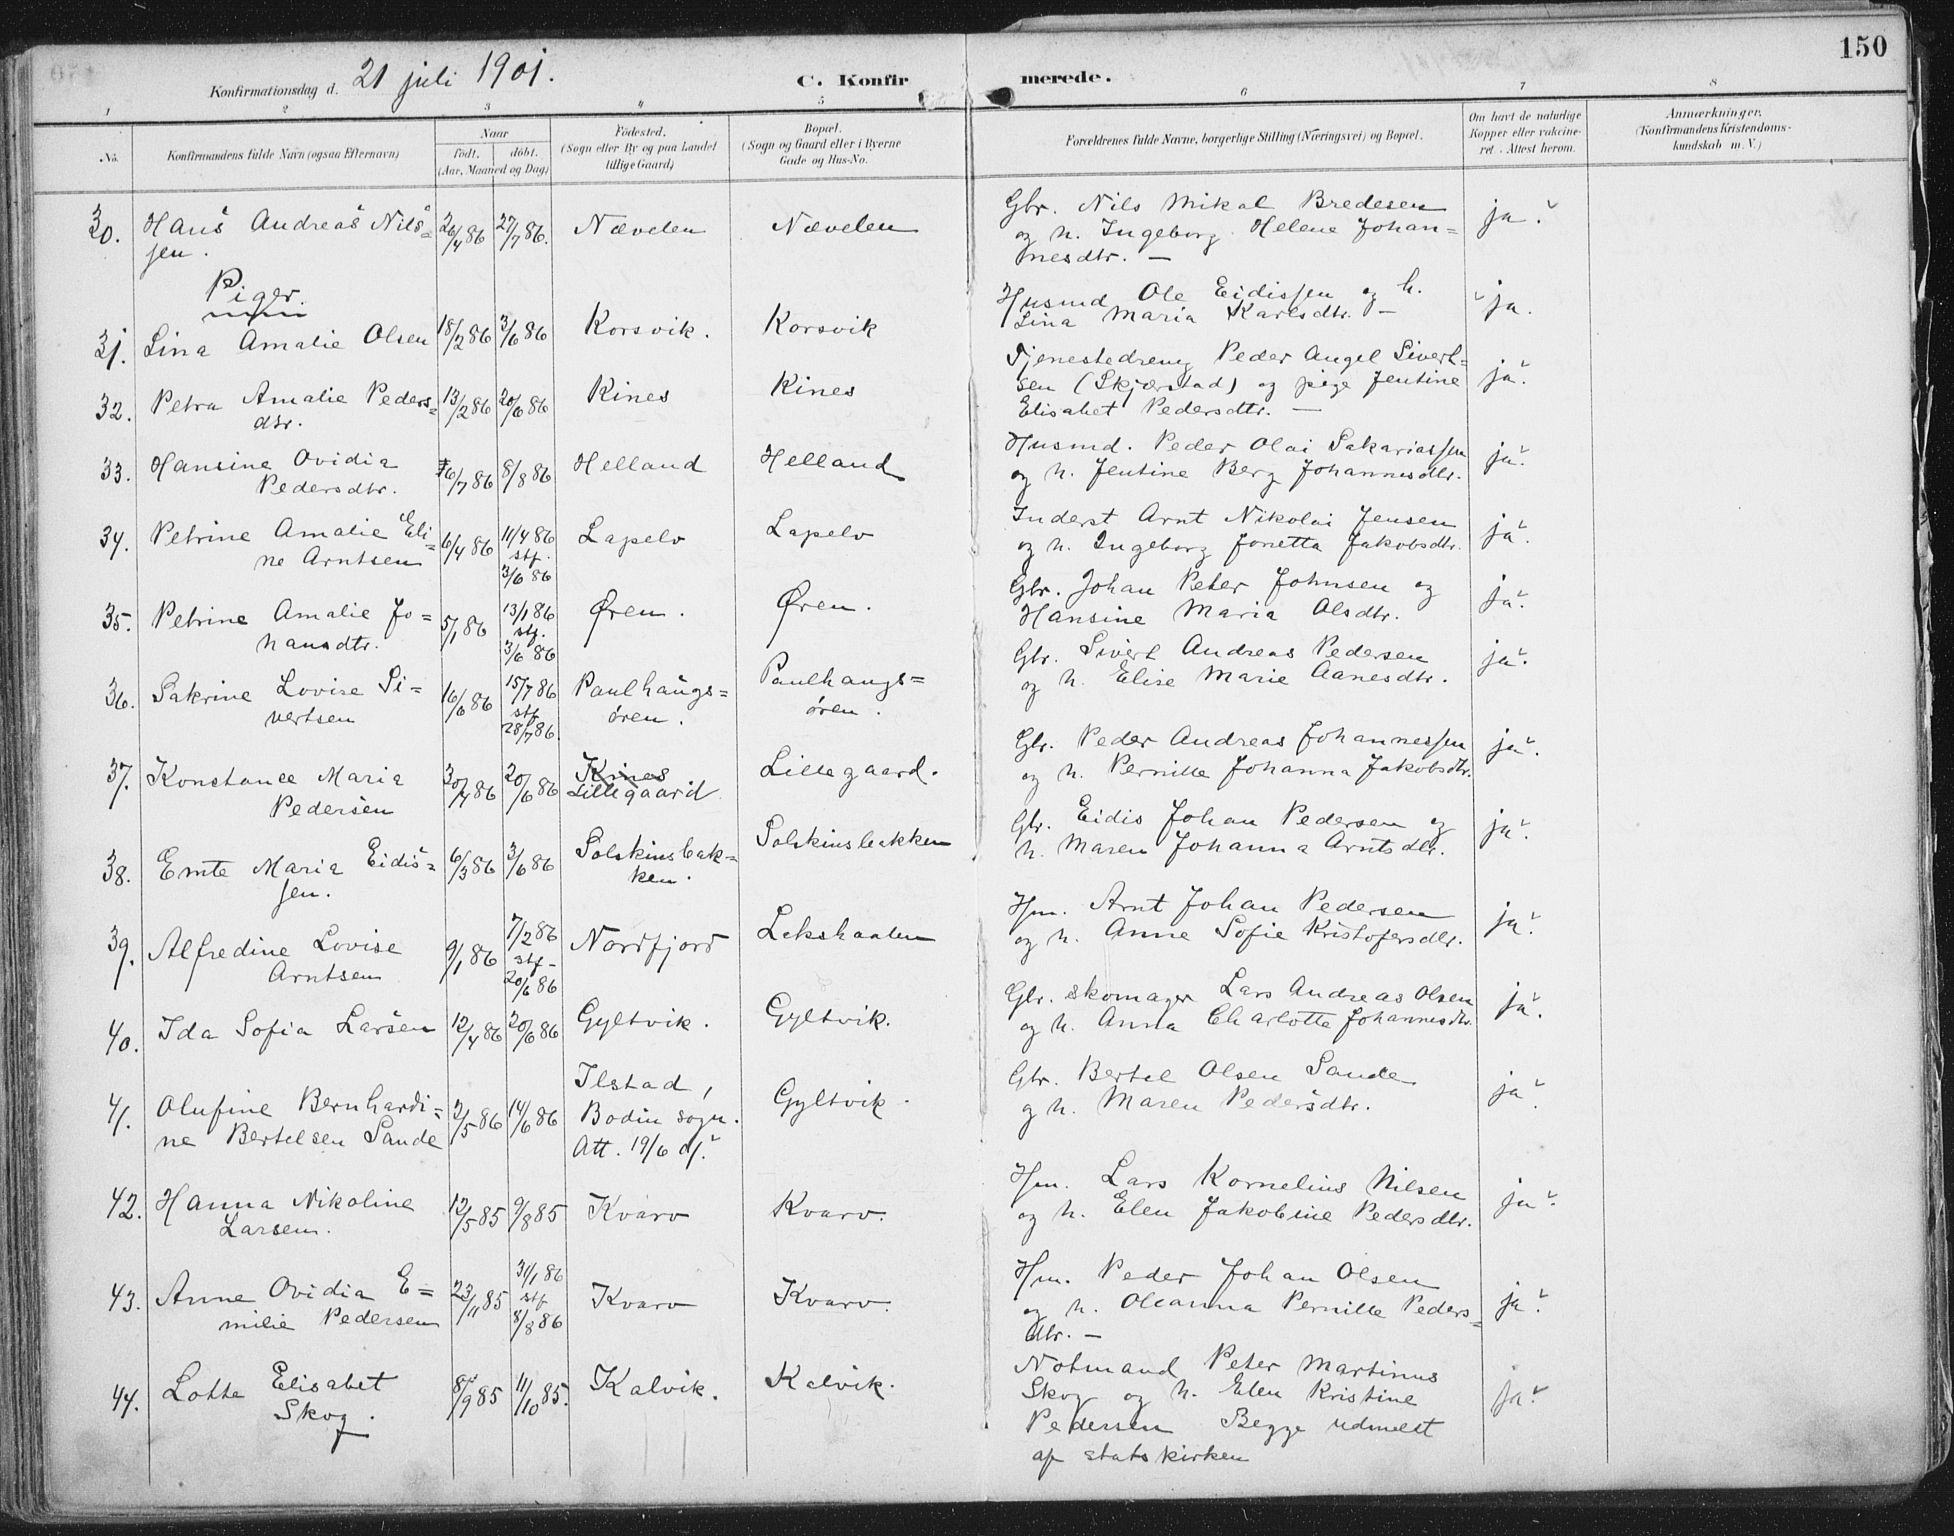 150
Konfirmationsdag d. 21 juli 1901.
C. Konfirmerede.
1 2 3 4 5 6 7 8
No.
Konfirmandens fulde Navn (ogsaa Efternavn)
Naar
født. døbt.
(Aar, Maaned og Dag)
Fødested.
(Sogn eller By og paa Landet
tillige Gaard)
Bopæl.
(Sogn og Gaard eller i Byerne
Gade og Hus-No.
Forældrenes fulde Navne, borgerlige Stilling (Næringsvei) og Bopæl.
Om havt de naturlige
Kopper eller vakcine-
ret. Attest herom.
Anmærkninger.
(Konfirmandens Kristendoms-
kundskab m. V.)
30. Hans Andreas Nils= 26/4 86 27/7 86. Nævelen Nævelen
sen.
Gbr. Nils Mikal Bredesen ja.
og h. Ingeborg Helene Johan=
nesdtr. —
Piger.
31. Lina Amalie Olsen 18/2 86 3/6 86 Korsvik. Korsvik
Husmd Ole Eidissen og h. ja.
Lina Maria Karlsdtr. —
32. Petra Amalie Peders= 13/2 86 20/6 86 Kines Kines
dtr.
Tjenestedreng Peder Angel Sivert=
sen (Skjærstad) og pige Jentine ja.
Elisabet Pedersdtr. —
33. Hansine Ovidia 16/7 86 8/8 86 Helland Helland
Pedersdtr.
Husmd. Peder Olai Sakariassen ja.
og h. Jentine Berg Johannesdtr.
34. Petrine Amalie Eli= 6/4 86 11/4 86 Lapelv Lapelv
ne Arntsen
stf.
3/6 86
Inderst Arnt Nikolai Jensen ja.
og h. Ingeborg Jonetta Jakobsdtr.
35. Petrine Amalie Jo= 5/1 86 13/1 86 Øren. Øren.
hansdtr.
stf.
3/6 86
Gbr. Johan Peter Johnsen og ja.
Hansine Maria Olsdtr.
36. Sakrine Lovise Si= 16/6 86 15/7 86 Paulhaugs= Paulhaugs=
vertsen
stf
28/7 86.
øren. øren.
Gbr. Sivert Andreas Pedersen ja.
og h. Elise Marie Aanesdtr.
37. Konstance Maria 30/4 86 20/6 86 Kines Lillegaard.
Pedersen
Lillegaard
Gbr. Peder Andreas Johannessen ja.
og h. Pernille Johanna Jakobsdtr.
38. Emte Maria Eidis= 6/3 86 3/6 86 Solskinsbak= Solskinsbakken
sen.
ken.
Gbr. Eidis Johan Pedersen og ja.
h. Maren Johanna Arntsdtr.
39. Alfredine Lovise 9/1 86 7/2 86 Nordfjord Lekshaalen
Arntsen
stf-
20/6 86
Hm. Arnt Johan Pedersen ja.
og h. Anne Sofie Kristofersdtr.
40. Ida Sofia Larsen 12/4 86 20/6 86 Gyltvik. Gyltvik.
Gbr. skomager Lars Andreas Olsen ja.
og h. Anna Charlotte Johannesdtr.
41. Olufine Bernhardi= 2/5 86 14/6 86 Ilstad, Gyltvik.
ne Bertelsen Sande
Bodin sogn.
Att. 19/6 d/.
Gbr. Bertel Olsen Sande ja.
og h. Maren Pedersdtr.
42. Hanna Nikoline 12/5 85 9/8 85 Kvarv Kvarv.
Larsen.
Hm. Lars Kornelius Nilsen ja.
og h. Elen Jakobine Pedersdtr.
43. Anne Ovidia E= 23/11 85 31/1 86 Kvarv Kvarv.
milie Pedersen
stf
8/8 86
Hm. Peder Johan Olsen ja.
og h. Oleanna Pernille Peders=
dtr. —
44. Lotte Elisabet 8/9 85 11/10 85. Kalvik. Kalvik.
Skog.
Notmand Peter Martinus
Skog og h. Elen Kristine ja.
Pedersen Begge udmeldt
af statskirken